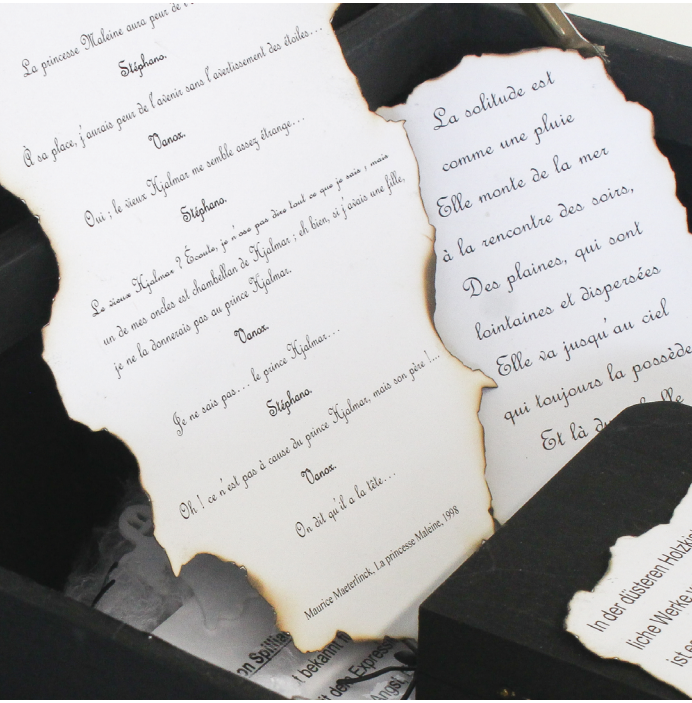 La princesse Maleine aura peur de l'
Stéphano.
À sa place, j'aurais peur de l'avenir sans l'avertissement des étoiles...
Vanox.
Oui ; le vieux Hjalmar me semble assez étrange...
Stéphano.
Le vieux Hjalmar ? Écoute, je n'ose pas dire tout ce que je sais ; mais
un de mes oncles est chambellan de Hjalmar ; eh bien, si j'avais une fille,
je ne la donnerais pas au prince Hjalmar.
Vanox.
Je ne sais pas... le prince Hjalmar...
Stéphano.
Oh ! ce n'est pas à cause du prince Hjalmar, mais son père !...
Vanox.
On dit qu'il a la tête...
Maurice Maeterlinck, La princesse Maleine, 1998
La solitude est
comme une pluie
Elle monte de la mer
à la rencontre des soirs,
Des plaines, qui sont
lointaines et dispersées
Elle va jusqu'au ciel
qui toujours la possède
Et là
on Spilliae
t bekannt
it dem Express
Angst
In der düsteren Holzki
liche Werke
ist e